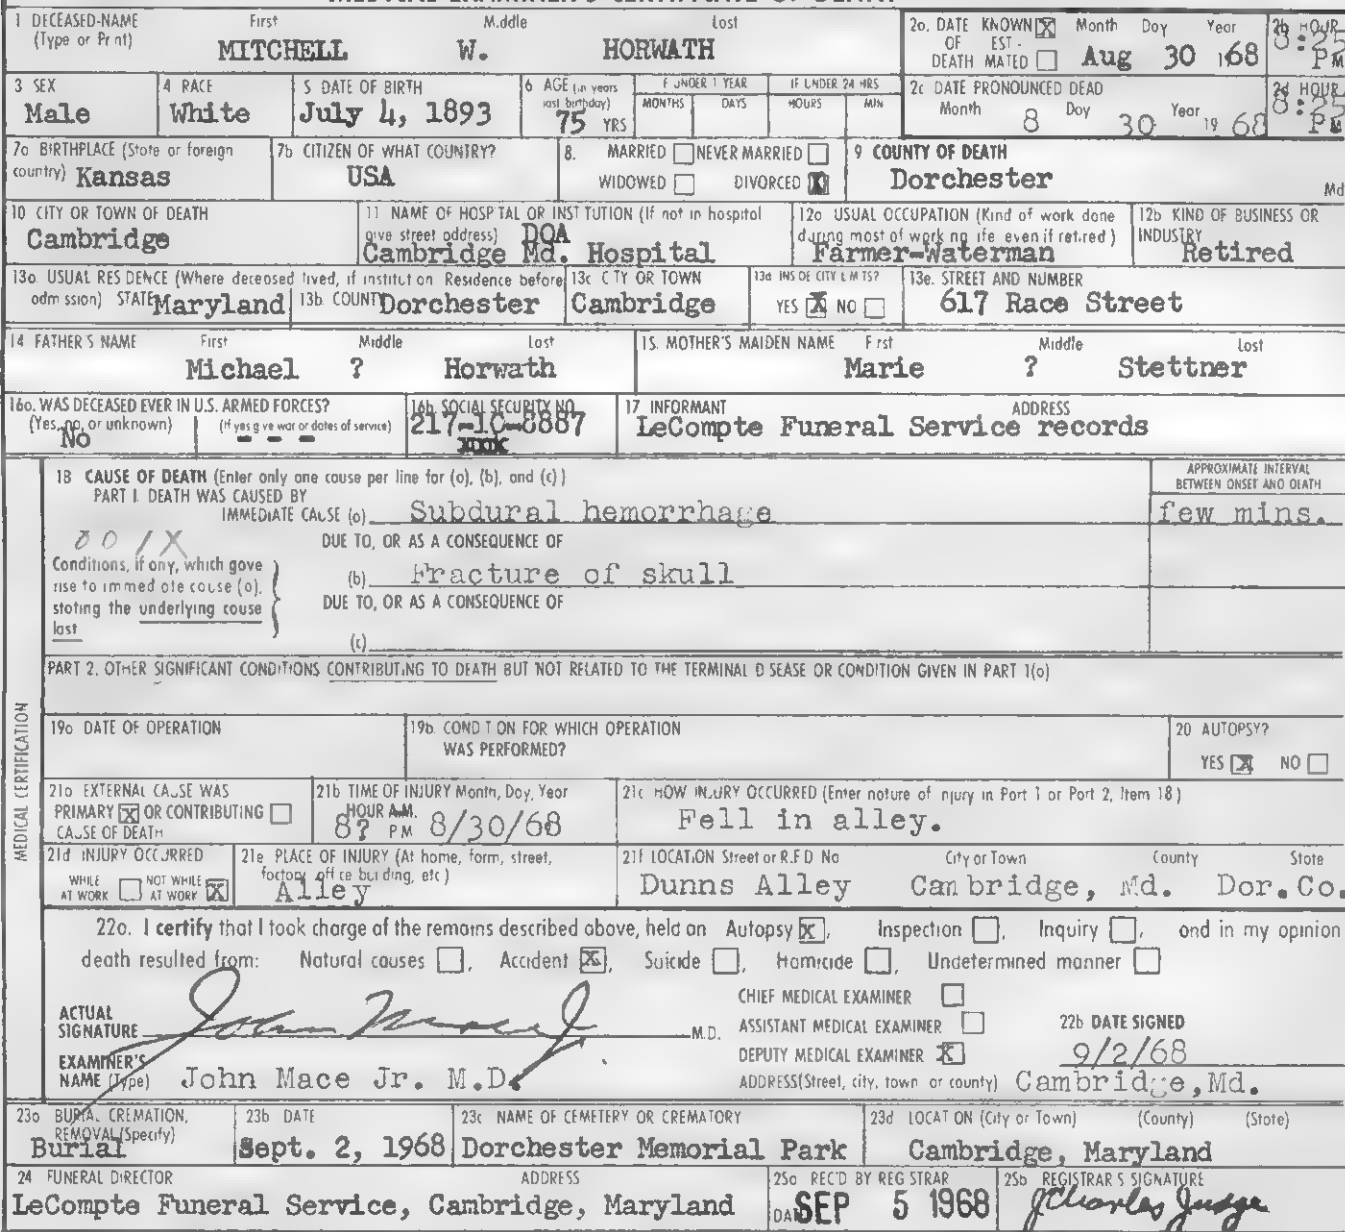 1 DECEASED-NAME First Middle Last
(Type or Print) MITCHELL W. HORWATH
2a. DATE KNOWN [X] Month Day Year 2b HOUR
OF EST-
DEATH MATED [ ] Aug 30 1968 8:25 PM
3 SEX Male
4 RACE White
5 DATE OF BIRTH July 4, 1893
6 AGE (in years last birthday) 75 YRS
IF UNDER 1 YEAR MONTHS DAYS
IF UNDER 24 HRS HOURS MIN
2c DATE PRONOUNCED DEAD Month 8 Day 30 Year 1968
2d HOUR 8:25 PM
7a BIRTHPLACE (State or foreign country) Kansas
7b CITIZEN OF WHAT COUNTRY? USA
8. MARRIED [ ] NEVER MARRIED [ ]
WIDOWED [ ] DIVORCED [X]
9 COUNTY OF DEATH Dorchester Md
10 CITY OR TOWN OF DEATH Cambridge
11 NAME OF HOSPITAL OR INSTITUTION (If not in hospital give street address) DOA
Cambridge Md. Hospital
12a USUAL OCCUPATION (Kind of work done during most of working life even if retired) Farmer-Waterman
12b KIND OF BUSINESS OR INDUSTRY Retired
13a. USUAL RESIDENCE (Where deceased lived, if institution Residence before admission) STATE Maryland
13b. COUNTY Dorchester
13c CITY OR TOWN Cambridge
13d INSIDE CITY LIMITS? YES [X] NO [ ]
13e. STREET AND NUMBER 617 Race Street
14 FATHER'S NAME First Middle Last
Michael ? Horwath
15. MOTHER'S MAIDEN NAME First Middle Last
Marie ? Stettner
16a. WAS DECEASED EVER IN U.S. ARMED FORCES?
(Yes, no, or unknown) (If yes give war or dates of service)
No - - -
16b. SOCIAL SECURITY NO. 217-10-8887
17 INFORMANT ADDRESS
LeCompte Funeral Service records
MEDICAL CERTIFICATION
18 CAUSE OF DEATH (Enter only one cause per line for (a), (b), and (c))
APPROXIMATE INTERVAL BETWEEN ONSET AND DEATH
PART I. DEATH WAS CAUSED BY
IMMEDIATE CAUSE (a) Subdural hemorrhage few mins.
DUE TO, OR AS A CONSEQUENCE OF
Conditions, if any, which gave rise to immediate cause (a), stating the underlying cause last
(b) Fracture of skull
DUE TO, OR AS A CONSEQUENCE OF
(c)
PART 2. OTHER SIGNIFICANT CONDITIONS CONTRIBUTING TO DEATH BUT NOT RELATED TO THE TERMINAL DISEASE OR CONDITION GIVEN IN PART 1(a)
19a DATE OF OPERATION
19b. CONDITION FOR WHICH OPERATION WAS PERFORMED?
20 AUTOPSY?
YES [X] NO [ ]
21a EXTERNAL CAUSE WAS
PRIMARY [X] OR CONTRIBUTING [ ]
CAUSE OF DEATH
21b TIME OF INJURY Month, Day, Year
HOUR A.M.
8? PM 8/30/68
21c HOW INJURY OCCURRED (Enter nature of injury in Part 1 or Part 2, Item 18)
Fell in alley.
21d INJURY OCCURRED
WHILE AT WORK [ ] NOT WHILE AT WORK [X]
21e PLACE OF INJURY (At home, farm, street, factory, office building, etc)
Alley
21f LOCATION Street or R.F.D No City or Town County State
Dunns Alley Cambridge, Md. Dor.Co.
22a. I certify that I took charge of the remains described above, held an Autopsy [X], Inspection [ ], Inquiry [ ], and in my opinion
death resulted from: Natural causes [ ], Accident [X], Suicide [ ], Homicide [ ], Undetermined manner [ ]
ACTUAL SIGNATURE John Mace Jr M.D.
CHIEF MEDICAL EXAMINER [ ]
ASSISTANT MEDICAL EXAMINER [ ]
DEPUTY MEDICAL EXAMINER [X]
22b DATE SIGNED
9/2/68
EXAMINER'S NAME (Type) John Mace Jr. M.D.
ADDRESS(Street, city, town or county) Cambridge, Md.
23a BURIAL, CREMATION, REMOVAL (Specify) Burial
23b DATE Sept. 2, 1968
23c NAME OF CEMETERY OR CREMATORY Dorchester Memorial Park
23d LOCATION (City or Town) (County) (State)
Cambridge, Maryland
24 FUNERAL DIRECTOR ADDRESS
LeCompte Funeral Service, Cambridge, Maryland
25a REC'D BY REGISTRAR
DATE SEP 5 1968
25b REGISTRAR'S SIGNATURE
J Charles Judge